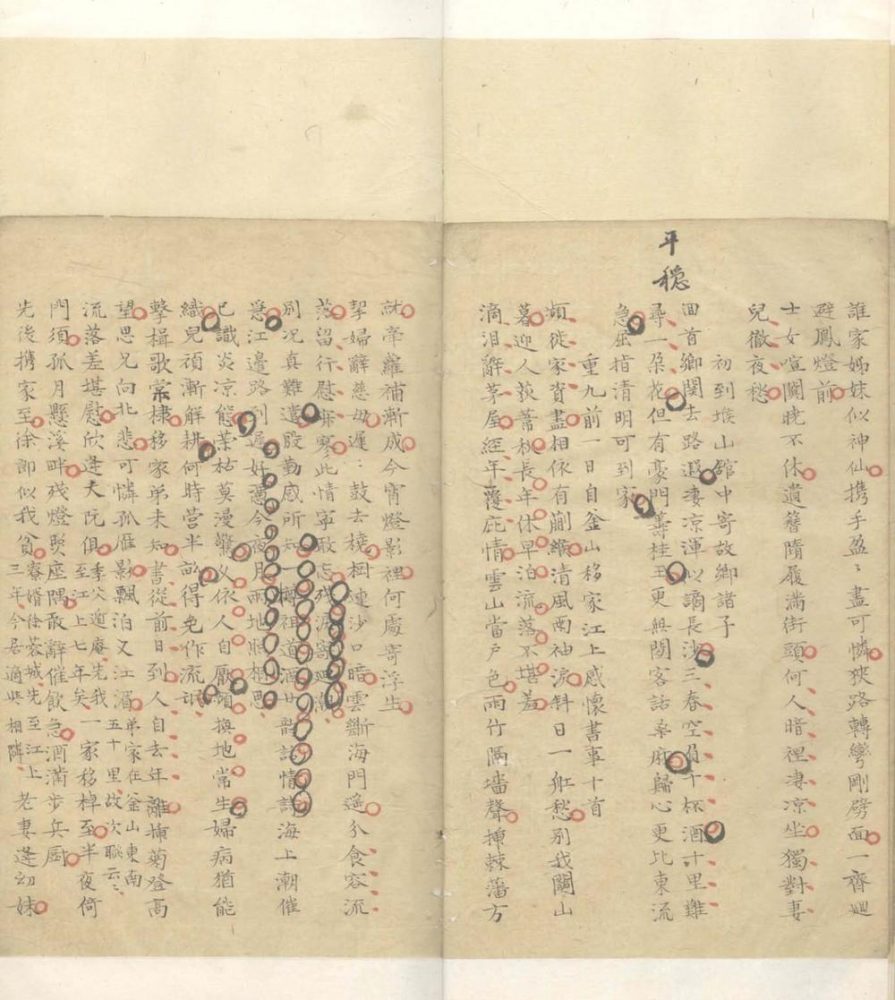 平穩
誰家姊妹似神仙携手盈〻盡可憐狹路轉彎剛劈面一齊廻
避鳳燈前
士女喧闐晓不休遺簪隋履滿街頭何人暗裡凄凉坐獨對妻
兒徹夜愁
初到堠山舘中寄故鄉諸子
回首鄉關去路遐凄凉渾以謫長沙三春空負千杯酒十里難
尋一朶花但有豪門籌桂玉更無閒客話桑麻歸心更比東流
急屈指清明可到家
重九前一日自釜山移家江上感懷書事十首
頻徙家資盡相依有蒯緱清風兩袖淚斜日一舡愁别我關山
暮迎人荻蕭秋長年休早泊流落不堪羞
滴泪辭茅屋經年覆庇情雲山當戶色雨竹隔墻聲揷棘藩方
就牽蘿補漸成今宵燈影裡何處寄浮生
挈婦辭慈母遲〻鼓去橈柳連沙口暗雲斷海門遥分食容流
落留行慰寂寥此情寧敢忘殘淚寄
别况真難遣殷勤感所知一樽祖道酒廿韻話情詩海上潮催
急江邊路到遲好憑今夜月兩地照相思
已識炎凉態榮枯莫漫驚久依人自厭頻換地常生婦病猶能
織兒頑漸解耕何時營半畝得免作流氓
擊楫歌棠棣移家弟未知書從前日到人自去年離揷菊登高
望思兄向北悲可憐孤雁影飄泊又江湄弟家在釜山東南五十里故次聯云〻
流落差堪慰欣逢大阮俱季父遁庵先我至江上七年矣一家移棹至半夜何
門須孤月懸溪畔殘燈聚座隅敢辭催飲急酒滿步兵厨
先後携家至徐郎似我貧寮壻徐蓉城先至江上三年今居適與相隣老妻逢幼妹